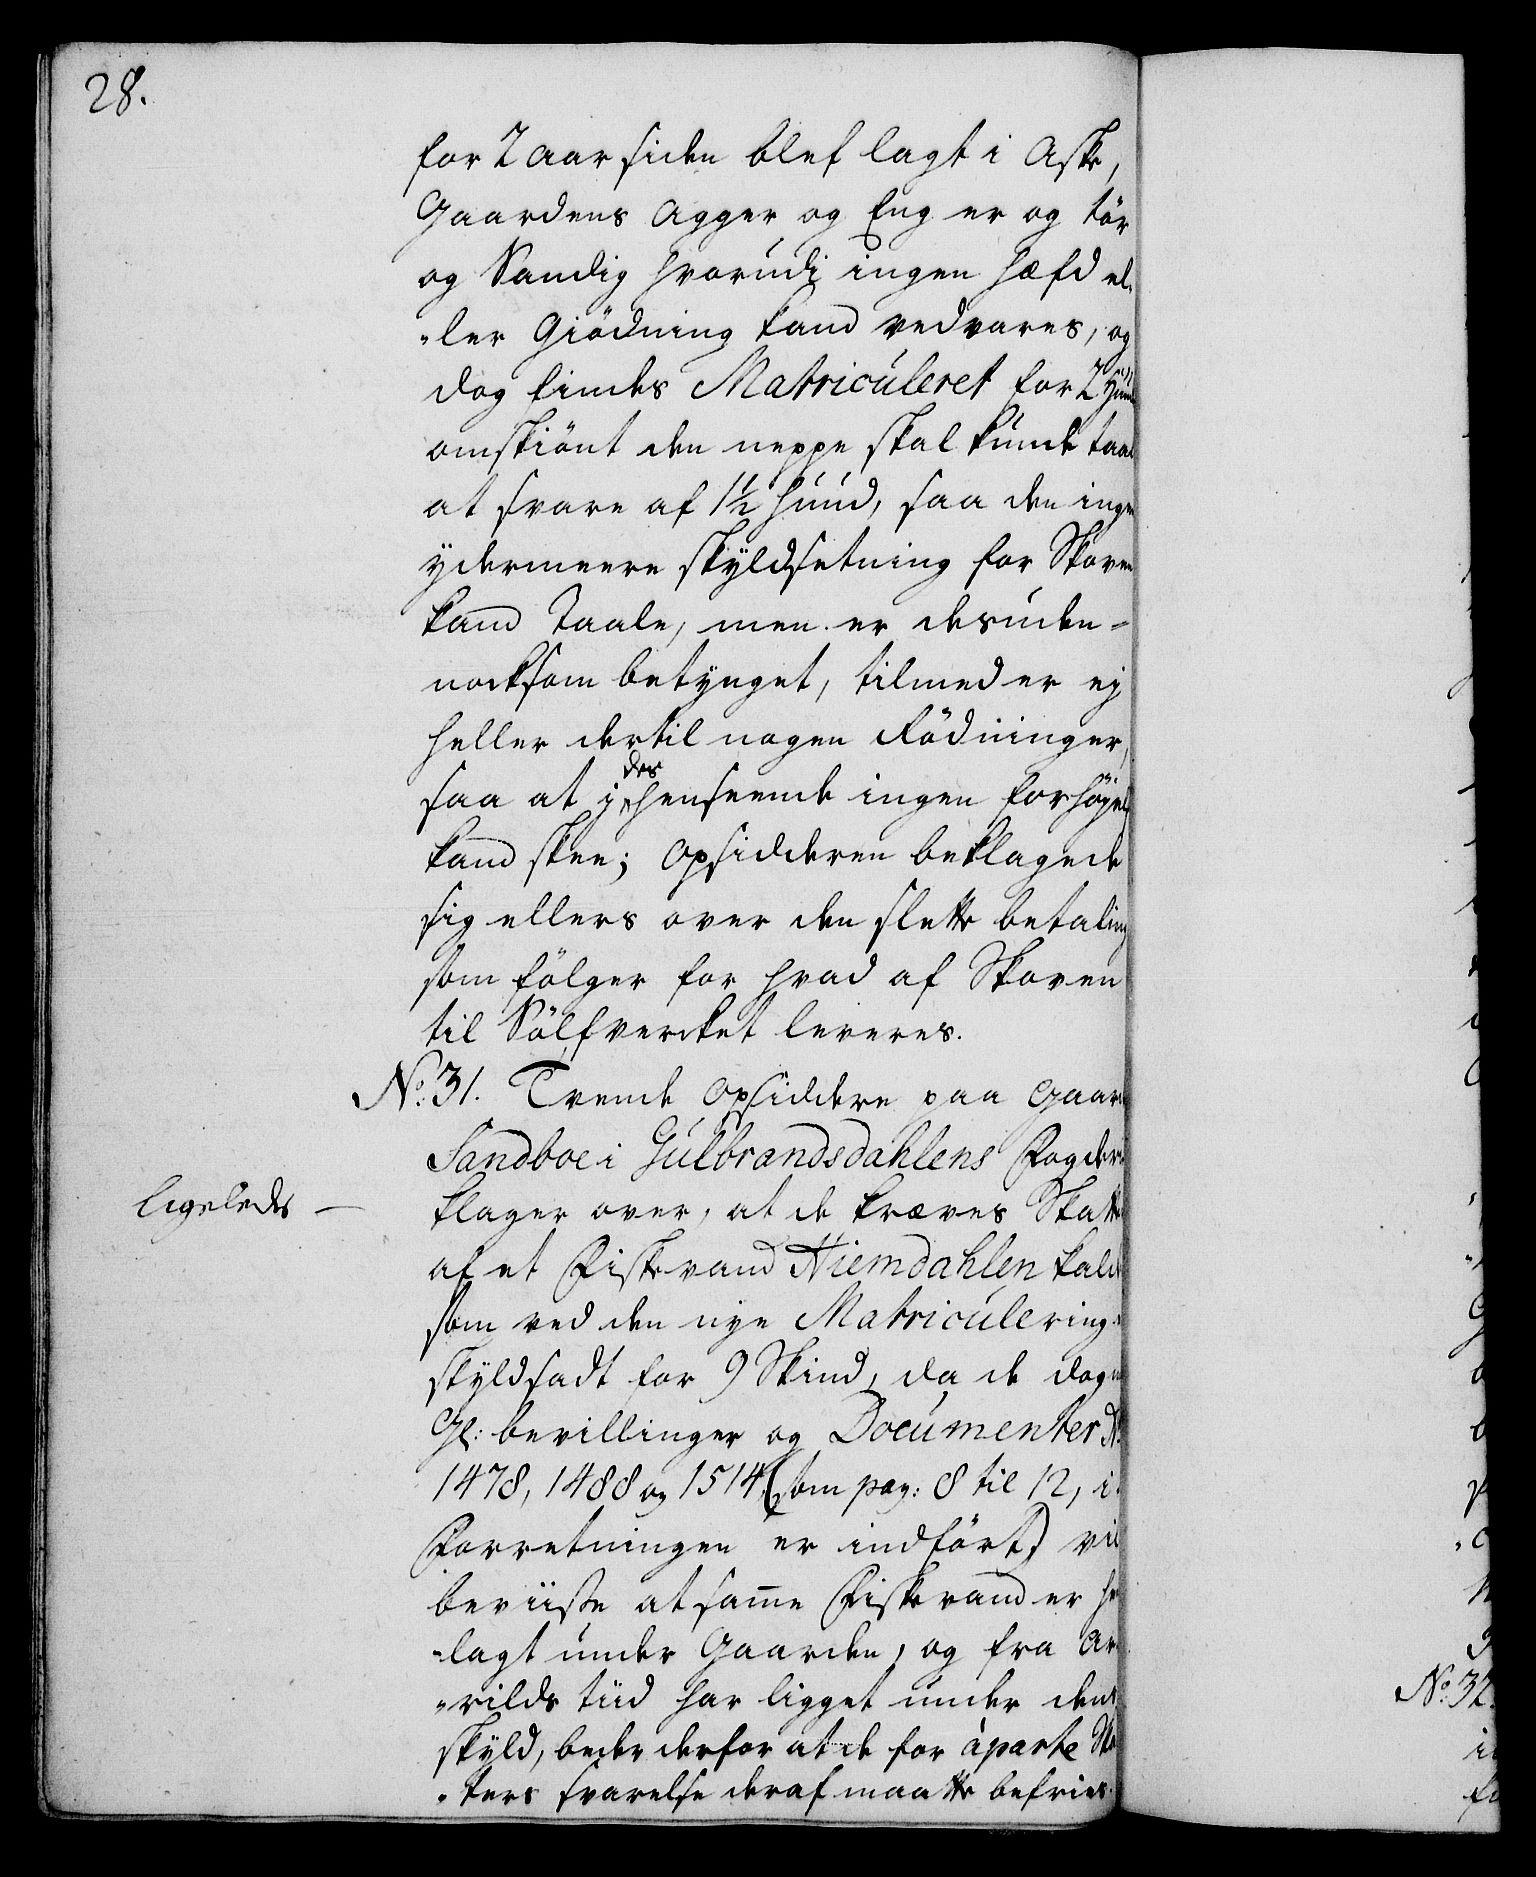 28.
for 2 aar siden blef lagt i Aske,
Gaardens Agger og Eng er og tör
og Sandig hvorudi ingen hæfd el¬
„ler Giödning kand vedvares, og
dog findes Matriculeret for 2 hund
omskiönt den neppe skal kunde taale
at svare af 1½ huud, saa den ingen
ydermeere skyldsetning for Skoven
kand Taale, men er desuden
nocksom betynget, tilmed er ej
heller dertil nogen Rödninger,
saa at j des henseende ingen forhöyelse
kand skee; Opsidderen beklagede
sig ellers over den slette betaling
som fölger for hvad af Skoven
til Sölfvercket leveres.
No: 31. Tvende Opsiddere paa Gaard
Sandboe i Gulbrandsdahlens Fogderi
ligeledes —
klager over, at de kræves Skatte
af et Fiskevand Hiemdahlen kaldt
som ved den nye Matriculering
skyldsadt for 9 Skind, da de dog
Gl: bevillinger og Documenter
1478, 1488 og 1514 (som pag: 8 til 12, i
Forretningen er indfört) vil
beviiße at samme Fiskevand er
„lagt under Gaarden, og fra Ar
„rilds tiid har ligget under dens
skyld, beder derfor at de for àparte
„ters svarelse deraf maatte befries.
No: 32.